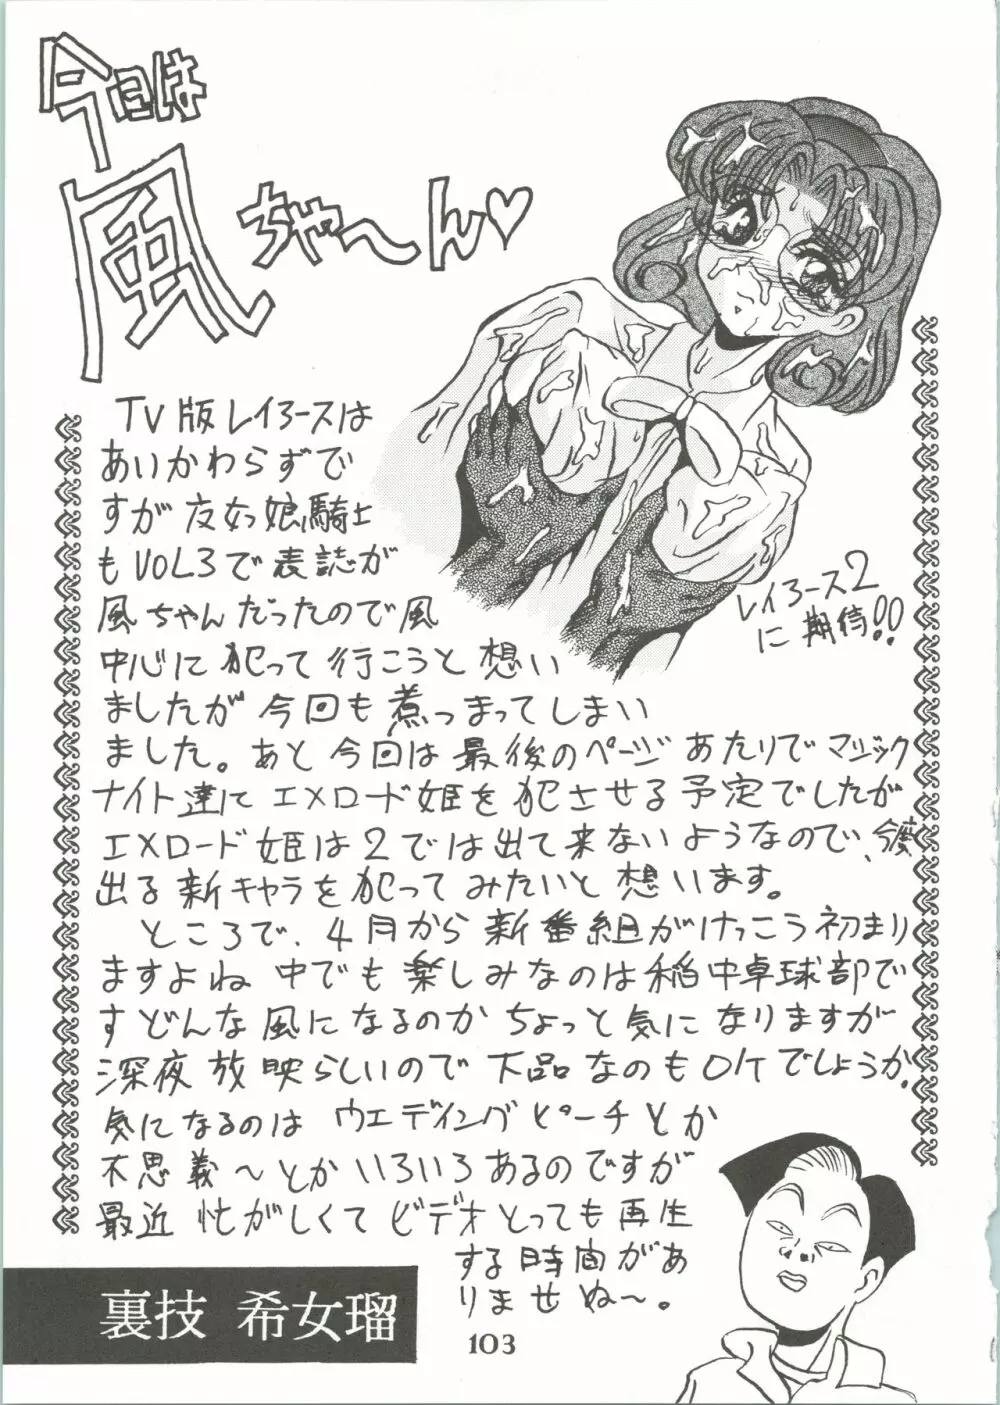 今日は
風ちゃ〜ん♡
TV版レイアースは
あいかわらずで
すが友女っ娘騎士
もVOL3で表誌が
風ちゃんだったので風
中心に犯って行こうと想い
ましたが今回も煮つまってしまい
ました。あと今回は最後のページあたりでマジック
ナイト達にエメロード姫を犯させる予定でしたが
エメロード姫は2では出て来ないようなので、今度
出る新キャラを犯ってみたいと想います。
ところで、4月から新番組がけっこう初まり
ますよね中でも楽しみなのは稲中卓球部で
すどんな風になるのかちょっと気になりますが
深夜放映らしいので下品なのもOKでしょうか。
気になるのはウエディングピーチとか
不思義〜とかいろいろあるのですが
最近忙がしくてビデオとっても再生
する時間があ
りませぬ〜。
レイアース2
に期待!!
裏技 希女瑠
103